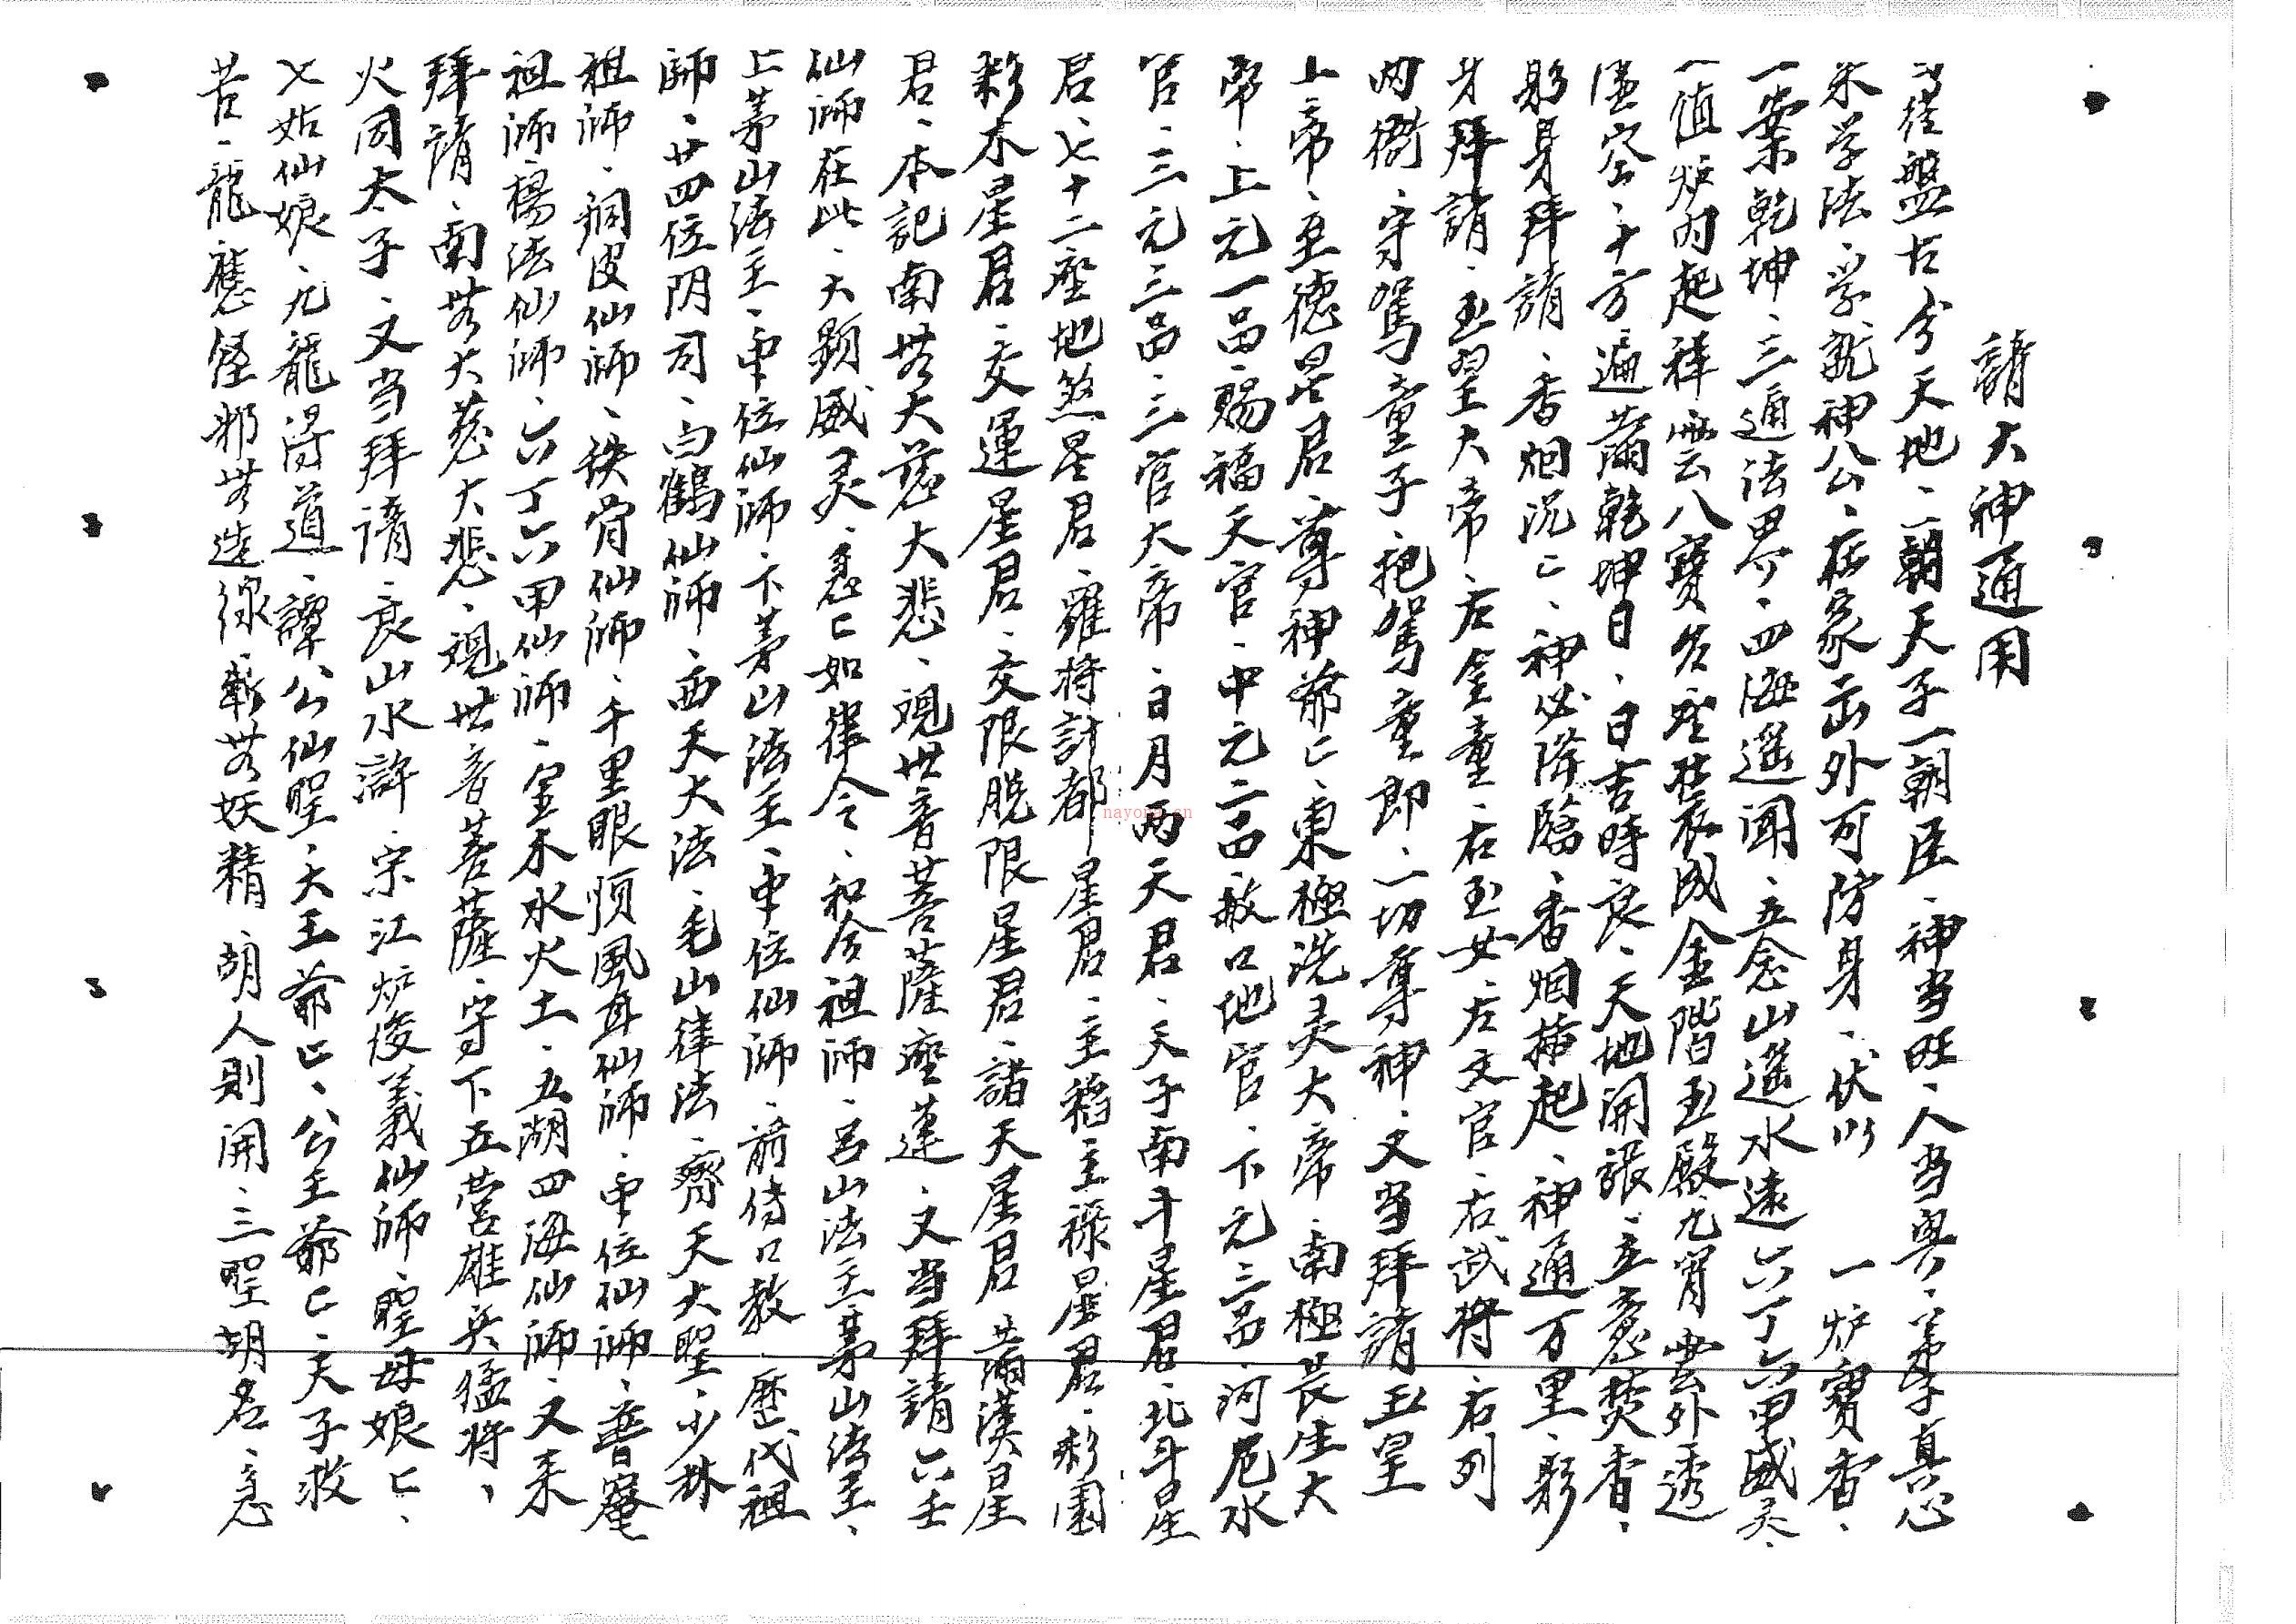 請大神通用
盤古分天地、一朝天子一朝臣、神当旺、人当興、弟子真心
来学法、学就神公、在家出外可防身、伏以 一炉寶香、
一案乾坤、三通法界、四海遥闻、五念山遥水遠六丁六甲威灵、
一值炉内起祥雲八寶 成金階玉殿九霄雲外透
虚空、十方遍满乾坤日、日吉時良、天地開張、立意焚香、
躬身拜請、香烟沉匕、神必降臨、香烟捧起、神通万里、躬
身拜請、玉皇大帝、左金童、右玉女、左文官、右武将、右列
两衙、守駕童子、抱駕童郎、一切尊神、又当拜請玉皇
上帝、至德星君、尊神爺匕、東極洗灵大帝、南極長生大
帝、上元一品賜福天官、中元二品赦口地官、下元三品、河厄水
官、三元三品、三官大帝、日月两天君、天子南斗星君、北斗星
君、七十二座地煞星君、羅将計都星君、主稻主禄星君、彩園
彩木星君、交運星君、交限脱限星君、諸天星君、满漢星
君、本記南無大慈大悲、观世音菩薩座蓮、又当拜請六壬
仙师在此、大顯威灵、急匕如律令、和合祖师、呂山法主茅山法主、
上茅山法主、中位仙师、下茅山法主、中位仙师、前傳口教、歷代祖
师、廿四位阴司、白鶴仙师、西天大法、毛山律法、齊天大聖、少林
祖师、銅皮仙师、铁骨仙师、千里眼順風耳仙师、中位仙师、普庵
祖师、楊法仙师、六丁六甲仙师、金木水火土、五湖四海仙师、又来
拜請、南無大慈大悲、观世音菩薩、守下五营雄兵猛将、
火同太子、又当拜請、良山水滸、宋江炉俊義仙师、聖母娘匕、
七姑仙娘、九龍得道、譚公仙聖、大王爺匕、公王爺匕、天子救
苦、龍 怪邪無造 、斬無妖精、胡人則開、三聖胡名、急
nayona.cn